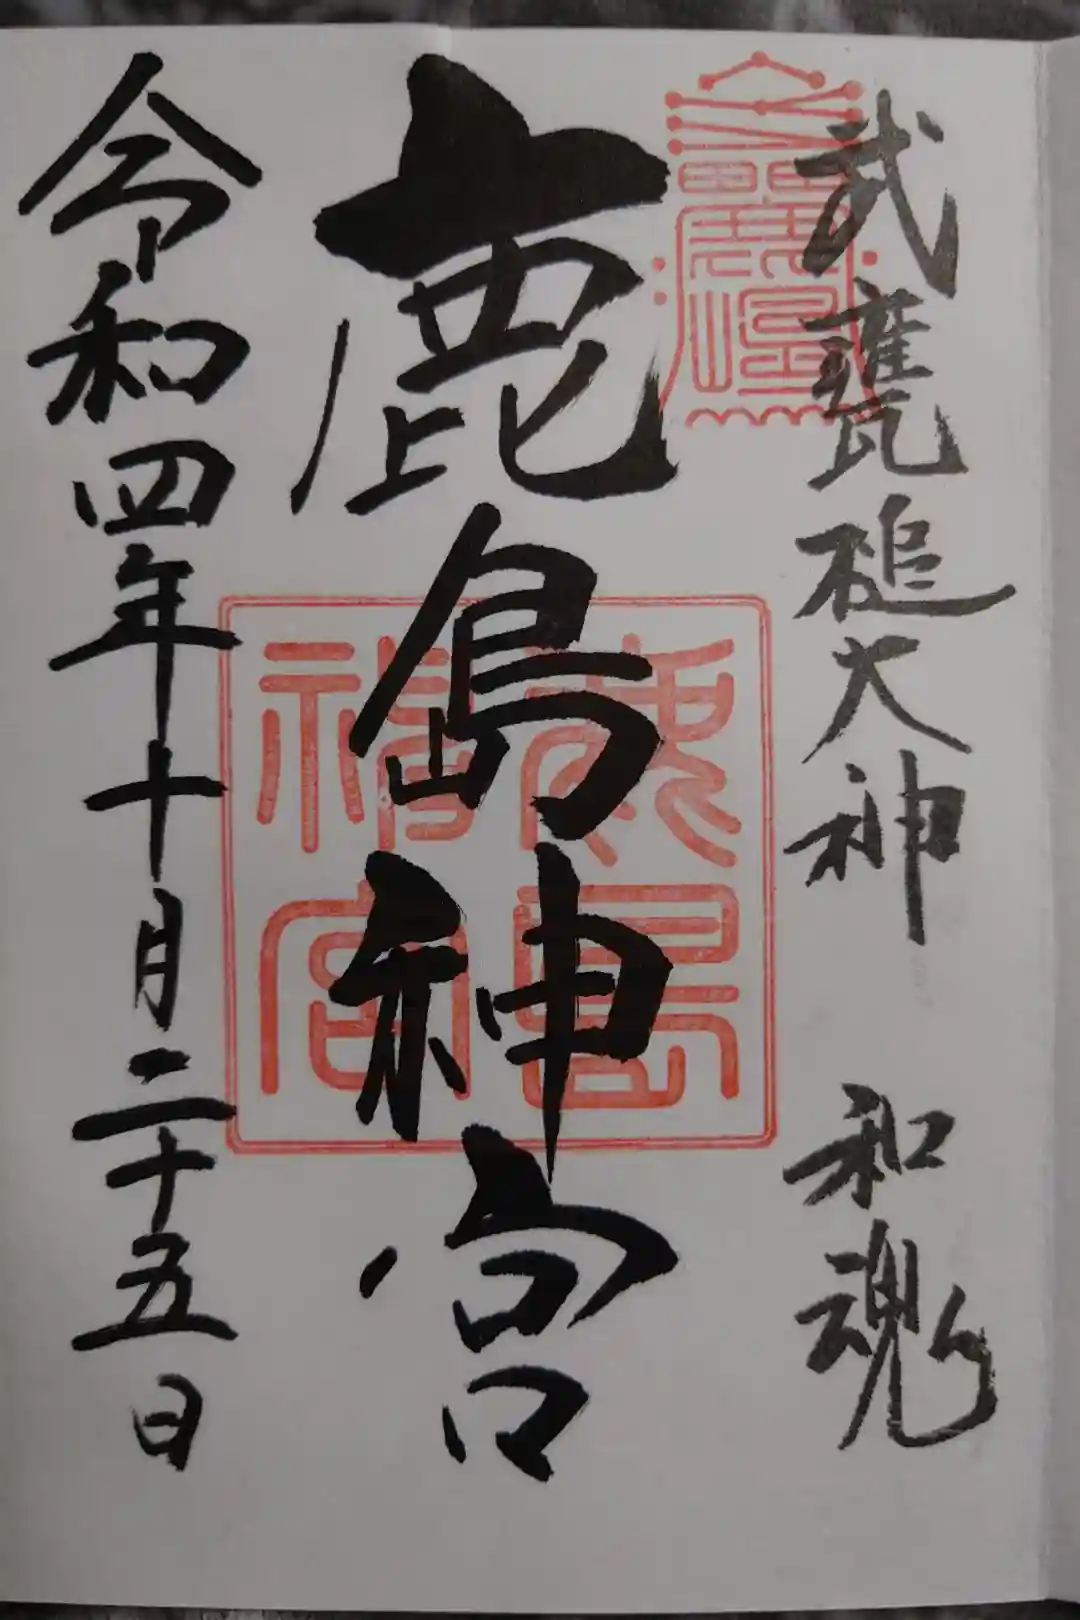 武甕槌大神 和魂
鹿島神宮
令和四年十月二十五日